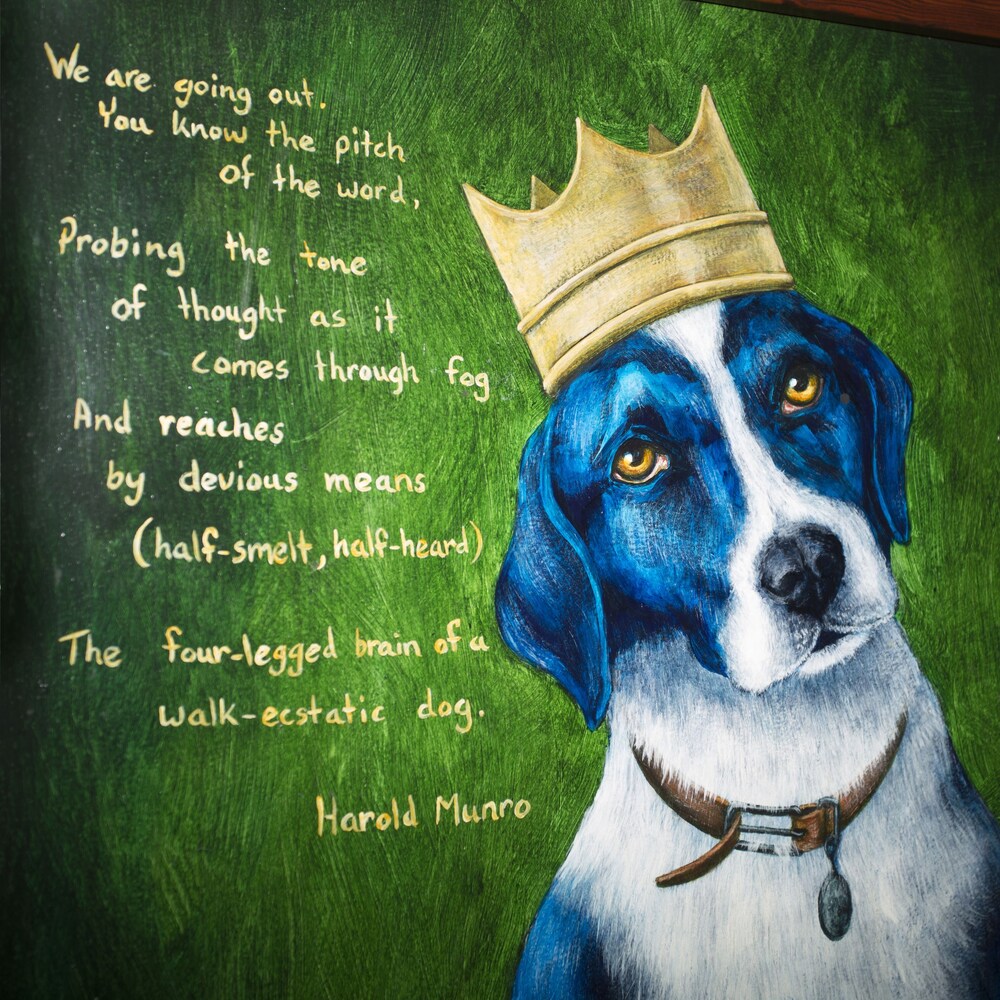 We are going out.
You know the pitch
of the word,
Probing the tone
of thought as it
comes through fog
And reaches
by devious means
(half-smelt, half-heard)
The four-legged brain of a
walk-ecstatic dog.
Harold Munro